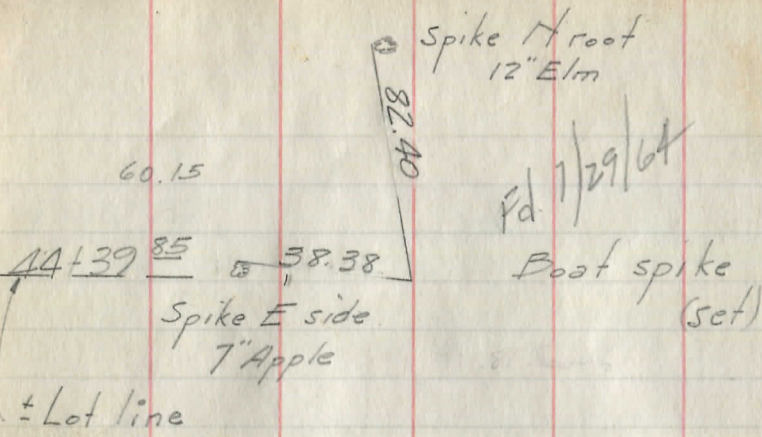 Spike N root
12" Elm
82.40
60.15
Fd. 7/29/64
44+39 85
38.38
Boat spike
(set)
Spike E side
7" Apple
± Lot line